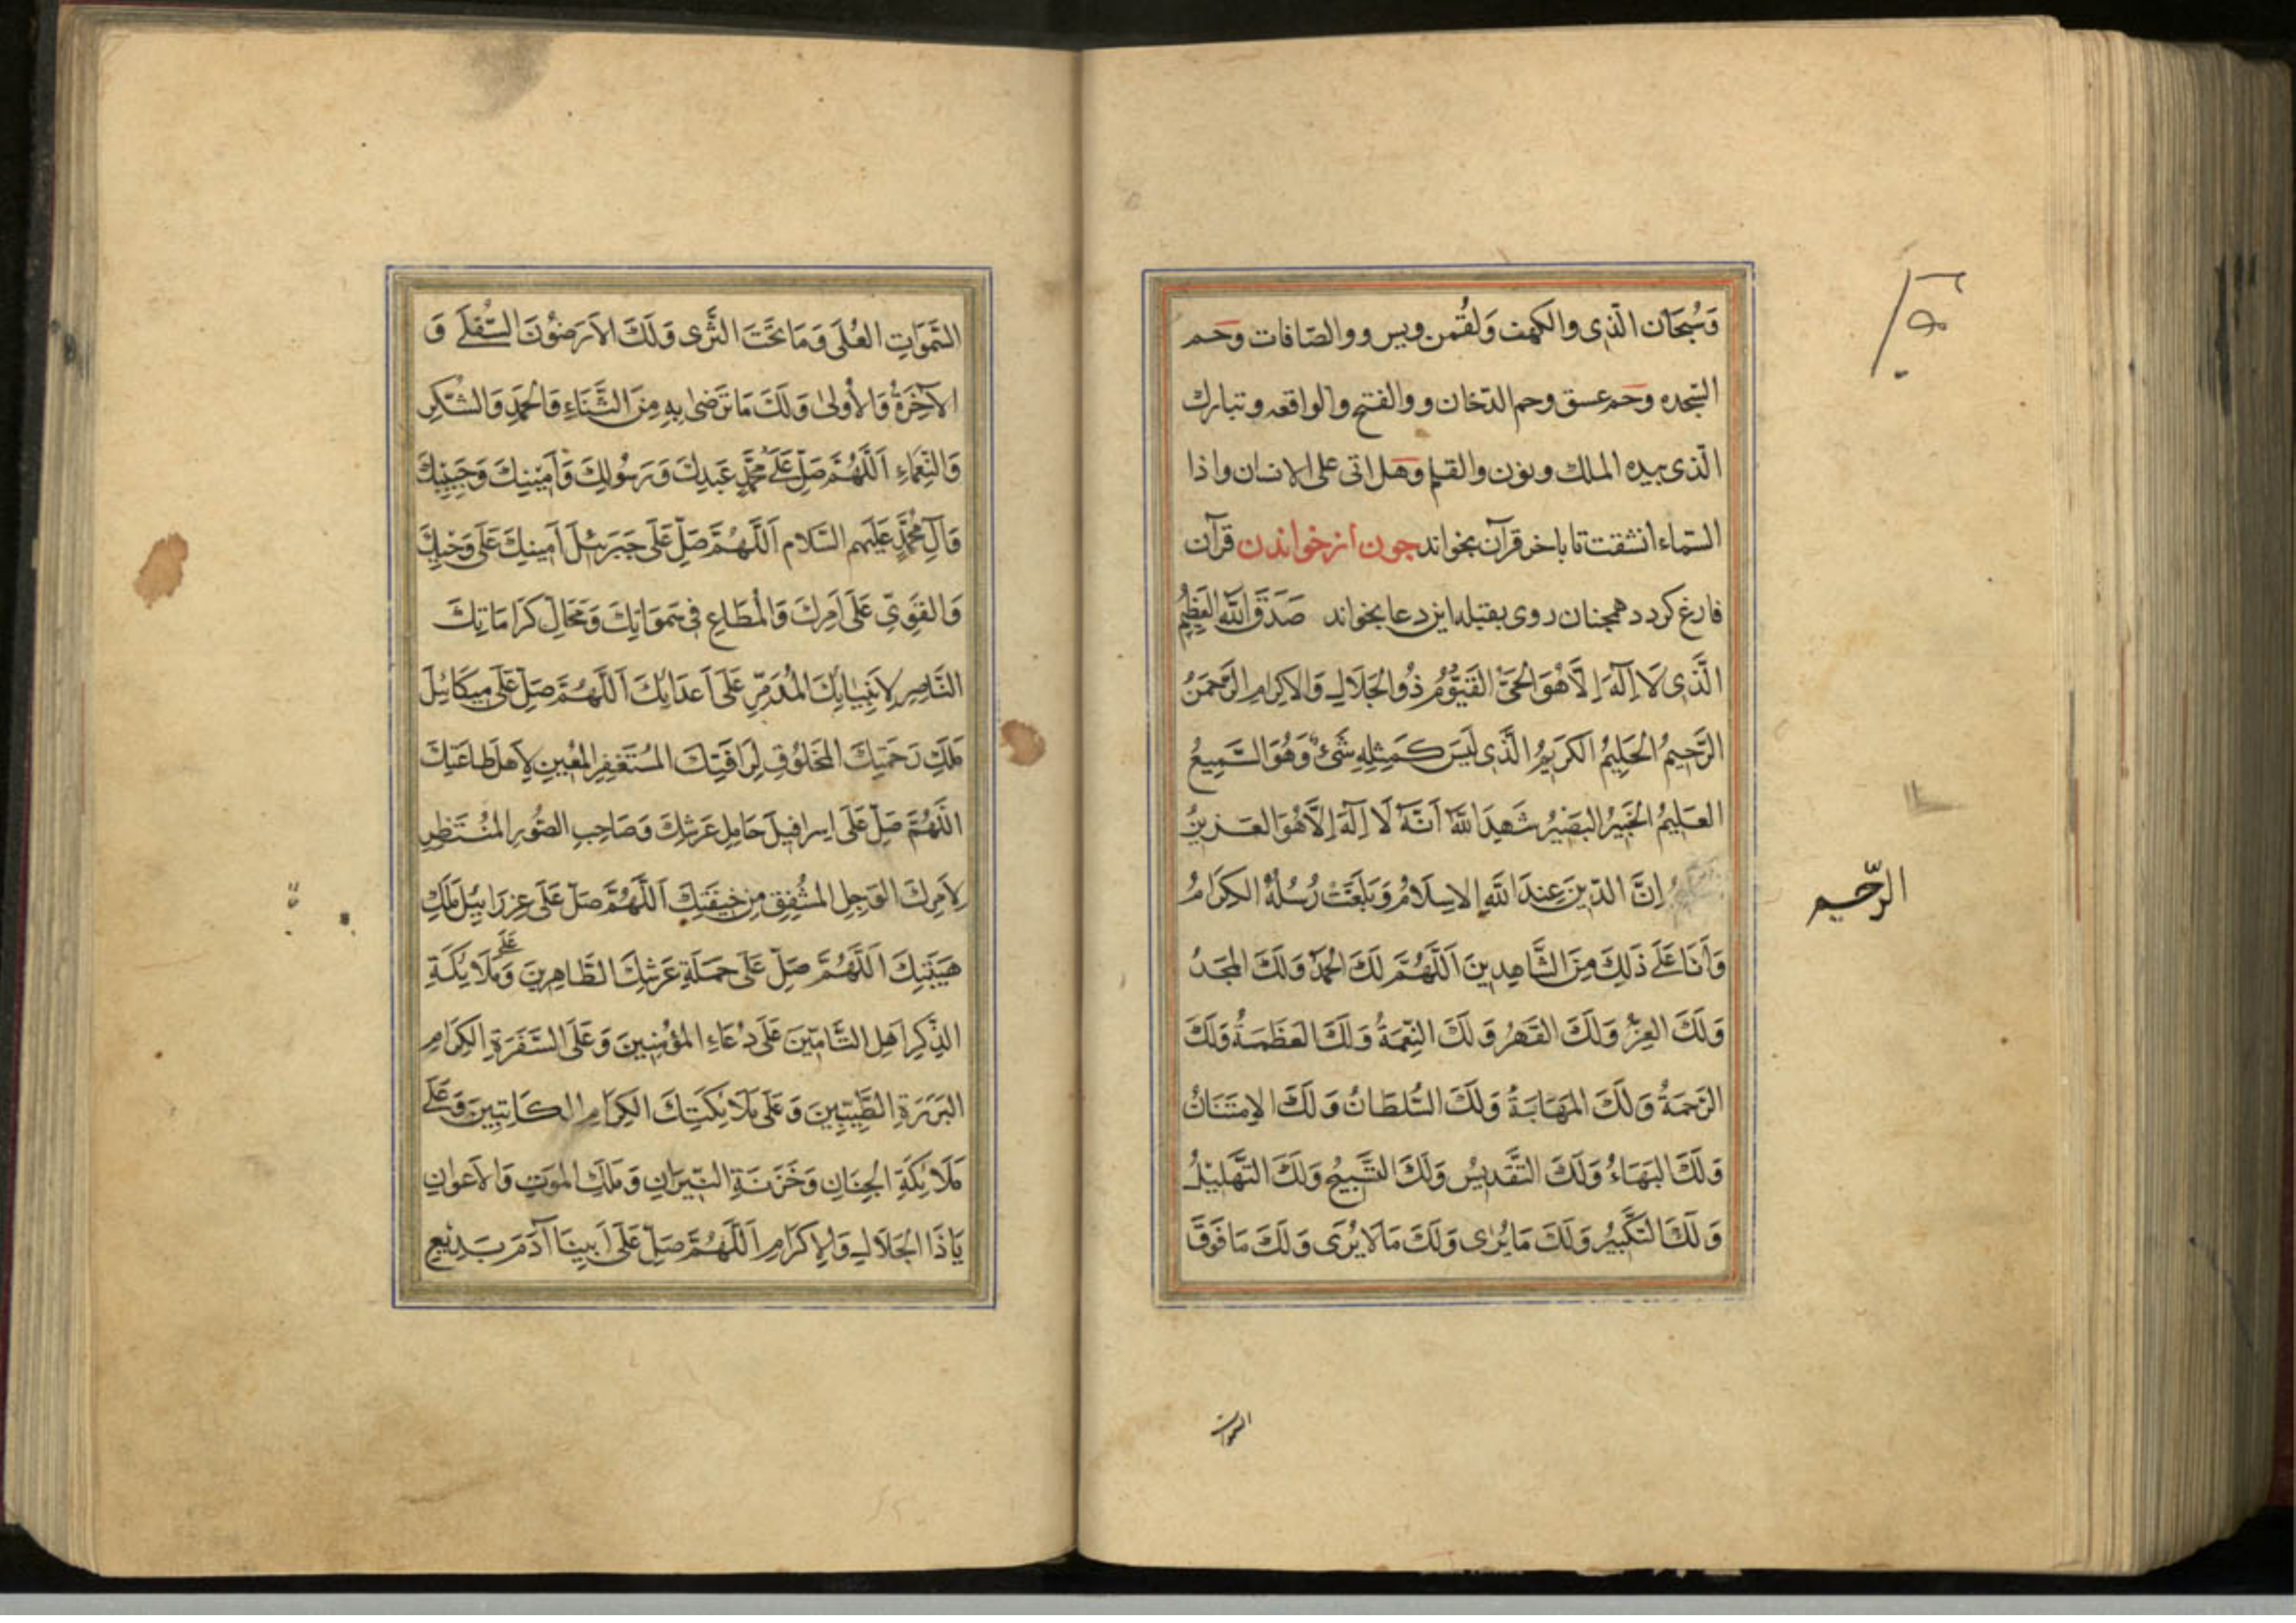 وَسُبحَان الّذى والكهف وَلقُمن ويس ووالصّافات وحم
السّجده وحَم عسق وحم الدّخان ووالفتح والواقعه وتبارك
الّذى بيده الملك ونون والقلم وهَل اتى على الانسان واذا
السّماء انشقت تا باخر قرآن بخواند جون از خواندن قرآن
فارغ كردد همچنان روى بقبله اين دعا بخواند صَدَقَ اللّهُ العَظِيمُ
الَّذى لَا اِلٰهَ اِلَّا هُوَ الحَىُّ القَيُّومُ ذُو الجَلَالِ وَالاِكرامِ الرَّحمٰنُ
الرَّحِيمُ الحَلِيمُ الكَرِيمُ الَّذى لَيسَ كَمِثلِهِ شَىءٌ وَهُوَ السَّمِيعُ
العَلِيمُ الخَبِيرُ البَصِيرُ شَهِدَ اللّهُ اَنَّهُ لَا اِلٰهَ اِلَّا هُوَ العَزِيزُ
اِنَّ الدّينَ عِندَ اللّهِ الاِسلَامُ وَبَلَّغَتْ رُسُلُهُ الكِرَامُ
الرّحيم
وَاَنَا عَلَى ذَلِكَ مِنَ الشَّاهِدِينَ اَللّهُمَّ لَكَ الحَمدُ وَلَكَ المَجدُ
وَلَكَ العِزُّ وَلَكَ القَهرُ وَلَكَ النِّعمَةُ وَلَكَ العَظَمَةُ وَلَكَ
الرَّحمَةُ وَلَكَ المَهَابَةُ وَلَكَ السُّلطَانُ وَلَكَ الاِمتِنَانُ
وَلَكَ البَهَاءُ وَلَكَ التَّقدِيسُ وَلَكَ التَّسبِيحُ وَلَكَ التَّهلِيلُ
وَلَكَ التَّكبِيرُ وَلَكَ مَا يُرٰى وَلَكَ مَا لَا يُرَى وَلَكَ مَا فَوقَ
السّموات
السَّمَوَاتِ العُلَى وَمَا تَحتَ الثَّرٰى وَلَكَ الاَرَضُونَ السُّفلَى وَ
الآخِرَةُ وَالأُولىٰ وَلَكَ مَا تَرضىٰ بِهِ مِنَ الثَّنَاءِ وَالحَمدِ وَالشُّكرِ
وَالنَّعمَاءِ اَللّهُمَّ صَلِّ عَلَى مُحَمَّدٍ عَبدِكَ وَرَسُولِكَ وَاَمِينِكَ وَحَبِيبِكَ
وَآلِ مُحَمَّدٍ عَلَيهِم السَّلَام اَللّهُمَّ صَلِّ عَلَى جَبرَئيلَ اَمِينِكَ عَلَى وَحيِكَ
وَالقَوِىِّ عَلَى اَمرِكَ وَالمُطَاعِ فِى سَمَوَاتِكَ وَمَحَالِّ كَرَامَاتِكَ
النَّاصِرِ لِاَنبِيَائِكَ المُدَمِّرِ عَلَى اَعدَائِكَ اَللّهُمَّ صَلِّ عَلَى مِيكَائِيلَ
مَلَكِ رَحمَتِكَ المَخلُوقِ لِرَافَتِكَ المُستَغفِرِ المُعِينِ لِاَهلِ طَاعَتِكَ
اَللّهُمَّ صَلِّ عَلَى اِسرَافِيلَ حَامِلِ عَرشِكَ وَصَاحِبِ الصُّورِ المُنتَظِرِ
لِاَمرِكَ الوَجِلِ المُشفِقِ مِن خِيفَتِكَ اَللّهُمَّ صَلِّ عَلَى عِزرَائِيلَ مَلَكِ
هَيبَتِكَ اَللّهُمَّ صَلِّ عَلَى حَمَلَةِ عَرشِكَ الطَّاهِرِينَ وَعَلَى مَلَائِكَةِ
الذِّكرِ اَهلِ التَّامِينَ عَلَى دُعَاءِ المُؤمِنِينَ وَعَلَى السَّفَرَةِ الكِرَامِ
البَرَرَةِ الطَّيِّبِينَ وَعَلَى مَلَائِكَتِكَ الكِرَامِ الكَاتِبِينَ وَعَلَى
مَلَائِكَةِ الجِنَانِ وَخَزَنَةِ النِّيرَانِ وَمَلَكِ المَوتِ وَالاَعوَانِ
يَا ذَا الجَلَالِ وَالاِكرَامِ اَللّهُمَّ صَلِّ عَلَى اَبِينَا آدَمَ بَدِيعِ